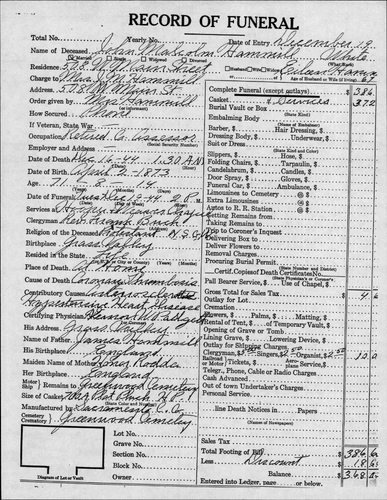 RECORD OF FUNERAL
Total No. Yearly No. Date of Entry December 19
Name of Deceased John Malcolm Hammill White
Married Widowed Divorced
Residence 528 W. Main Street Husband Wife Widow of
Charge to Mrs. J. M. Hammill
528 W. Main St.
Order given by Mrs Hammill
How Secured Phone
If Veteran, State War
Occupation Retired Co. Assessor
(Social Security Number)
Employer and Address
Date of Death Dec. 16-44 1:30 A.M.
Date of Birth April 2-1873
Age 71 8 14
Date of Funeral
Services at
Clergyman
Religion of the Deceased Protestant N.S.G.W.
Birthplace Grass Valley
Resided in the State Life
Place of Death At Home
Cause of Death Coronary Thrombosis
Contributory Causes
Hypertensive Heart Disease
Certifying Physician
His Address Grass Valley
Name of Father James Hammill
His Birthplace England
Maiden Name of Mother
Her Birthplace England
Motor Ship Remains to Greenwood Cemetery
Size of Casket
Manufactured by Sacramento C. Co.
Cemetery Crematory Greenwood Cemetery
Lot No.
Grave No.
Section No.
Block No.
Owner
Diagram of Lot or Vault
Complete Funeral (except outlays) $ 386
Casket & Services 372
Burial Vault or Box
Embalming Body
(Name of Embalmer)
Barber, $ Hair Dressing, $
Dressing Body, $ Underwear, $
Suit or Dress,
(State Kind and Color)
Slippers, $ Hose, $
Folding Chairs, $ Tarpaulin, $
Candelabrum, $ Candles, $
Door Spray, $ Gloves, $
Funeral Car, $ Ambulance, $
Limousines to Cemetery @ $
Extra Limousines @ $
Autos to R. R. Station @ $
Getting Remains from
Taking Remains to
Trip to Coroner's Inquest
Delivering Box to
Deliver Flowers to
Removal Charges
Procuring Burial Permit
(State Number and District)
Certif. Copies of Death Certificate No.
Pall Bearer Service, $ Use of Chapel, $
Gross Total for Sales Tax $ 4
Outlay for Lot
Cremation
Flowers, $ Palms, $ Matting, $
Rental of Tent, $ of Temporary Vault, $
Opening of Grave or Tomb
Lining Grave, $ Lowering Device, $
Outlay for Shipping Charges
Clergyman, $ Singers, $ Organist, $ 10 0
Railroad Motor Tickets, $
Telegr., Phone, Cable or Radio Charges
Cash Advanced
Out of town Undertaker's Charges
Personal Service
line Death Notices in Papers
(Names of Newspapers)
Sales Tax
Total Footing of Bill $ 386
Less Discount $ 18
Balance $ 368
Entered into Ledger